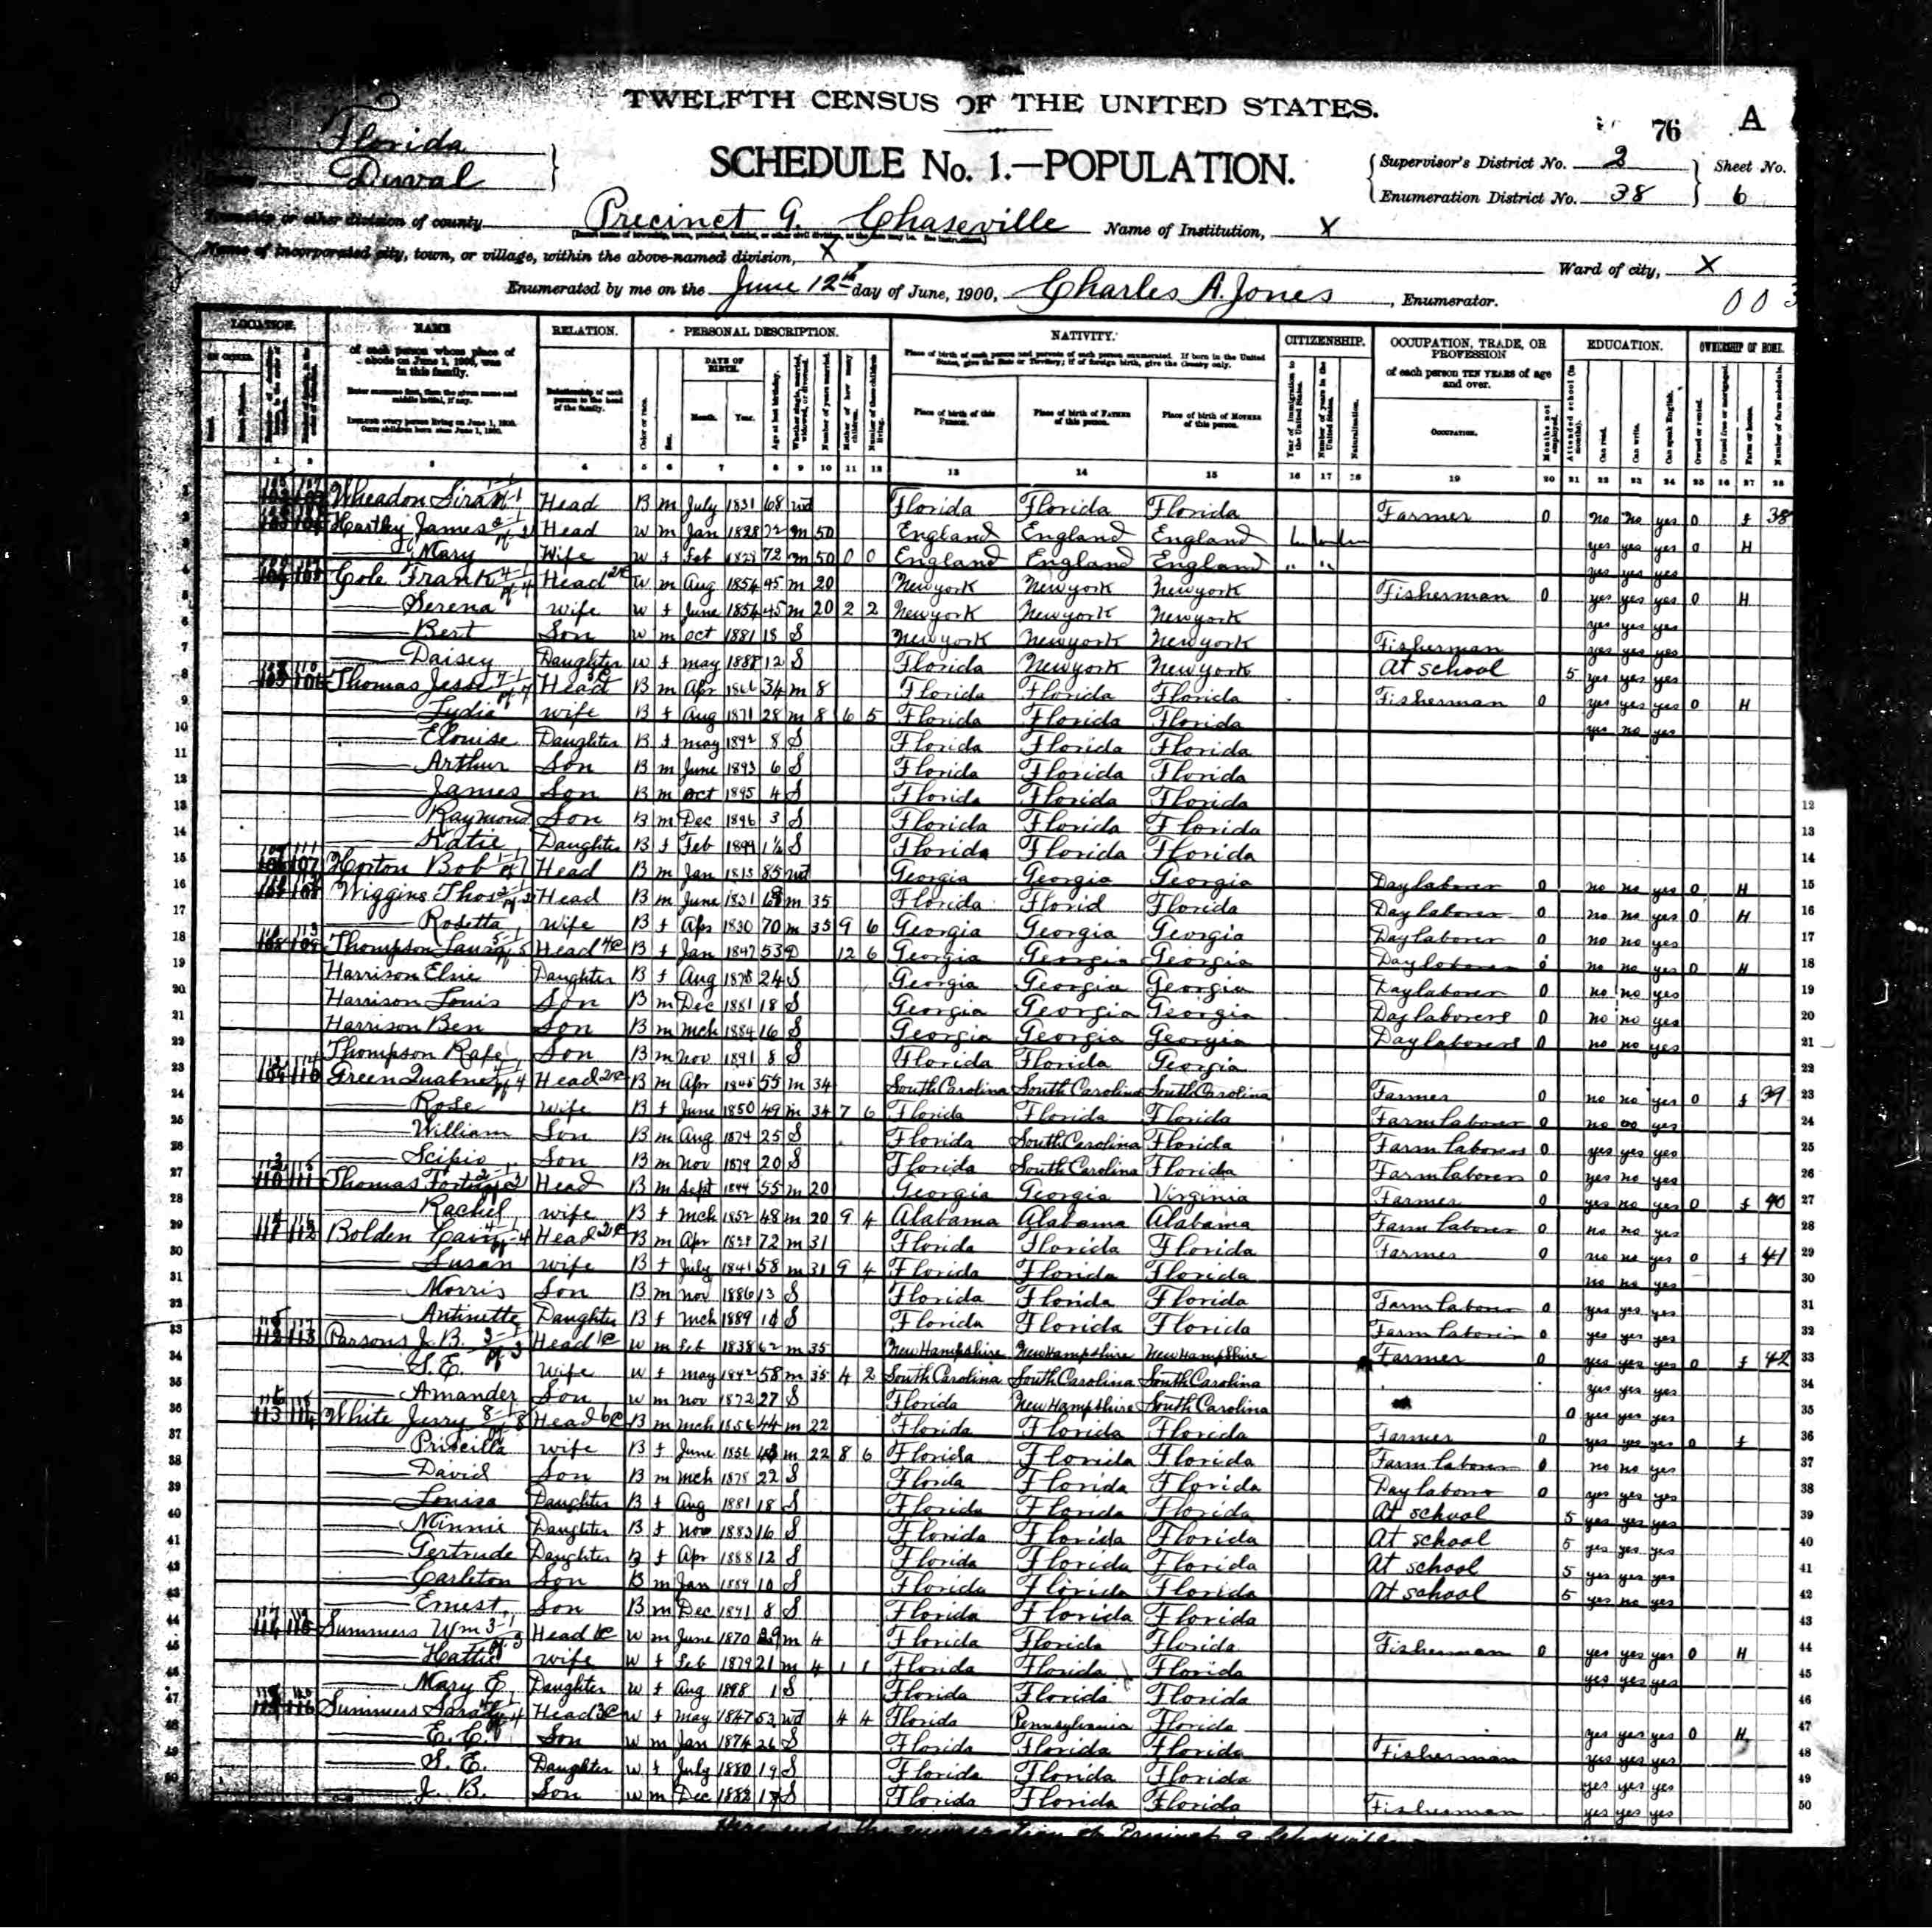 TWELFTH CENSUS OF THE UNITED STATES.
76 A
Florida
Duval
SCHEDULE No. 1.—POPULATION.
Supervisor's District No. 2
Sheet No.
Enumeration District No. 38
6
Township or other division of county Precinct 9. Chaseville Name of Institution, X
Name of incorporated city, town, or village, within the above-named division, X Ward of city, X
Enumerated by me on the June 12th day of June, 1900, Charles A. Jones, Enumerator.
003
LOCATION. NAME RELATION. PERSONAL DESCRIPTION. NATIVITY. CITIZENSHIP. OCCUPATION, TRADE, OR PROFESSION EDUCATION. OWNERSHIP OF HOME.
of each person whose place of abode on June 1, 1900, was in this family. Relationship of each person to the head of the family. DATE OF BIRTH. Month. Year. Place of birth of this Person. Place of birth of Father of this person. Place of birth of Mother of this person. of each person TEN YEARS of age and over. Occupation.
1 2 3 4 5 6 7 8 9 10 11 12 13 14 15 16 17 18 19 20 21 22 23 24 25 26 27 28
Wheadon Head B m July 1831 68 wd Florida Florida Florida Farmer 0 no no yes 0 f 38
Hartley James Head W m Jan 1828 72 m 50 England England England yes yes yes 0 H
Mary Wife W f Feb 72 m 50 0 0 England England England yes yes yes
Cole Frank Head W m Aug 1854 45 m 20 Newyork Newyork Newyork Fisherman 0 yes yes yes 0 H
Serena wife W f June 1854 45 m 20 2 2 Newyork Newyork Newyork yes yes yes
Bert Son W m oct 1881 18 S Newyork Newyork Newyork Fisherman yes yes yes
Daisey Daughter W f may 1888 12 S Florida Newyork Newyork At school 5 yes yes yes
Thomas Jesse Head B m Apr 1866 34 m 8 Florida Florida Florida Fisherman 0 yes yes yes 0 H
Lydia wife B f Aug 1871 28 m 8 6 5 Florida Florida Florida yes no yes
Elouise Daughter B f may 1892 8 S Florida Florida Florida
Arthur Son B m June 1893 6 S Florida Florida Florida
James Son B m oct 1895 4 S Florida Florida Florida
Raymond Son B m Dec 1896 3 S Florida Florida Florida
Katie Daughter B f Feb 1899 S Florida Florida Florida
Horton Bob Head B m Jan 85 wd Georgia Georgia Georgia Day laborer 0 no no yes 0 H
Wiggins Thos Head B m June 1831 m 35 Florida Florid Florida Day laborer 0 no no yes 0 H
Rosetta wife B f Apr 1830 70 m 35 9 6 Georgia Georgia Georgia Day laborer 0 no no yes
Thompson Laura Head B f Jan 1847 53 D 12 6 Georgia Georgia Georgia Day laborer 0 no no yes 0 H
Harrison Elsie Daughter B f Aug 24 S Georgia Georgia Georgia Day laborer 0 no no yes
Harrison Louis Son B m Dec 1881 18 S Georgia Georgia Georgia Day laborers 0 no no yes
Harrison Ben Son B m mch 1884 16 S Georgia Georgia Georgia Day laborers 0 no no yes
Thompson Rafe Son B m nov 1891 8 S Florida Florida Georgia
Green Head B m Apr 1845 55 m 34 South Carolina South Carolina South Carolina Farmer 0 no no yes 0 f 39
Rose wife B f June 1850 49 m 34 7 6 Florida Florida Florida Farm laborer 0 no no yes
William Son B m Aug 1874 25 S Florida South Carolina Florida Farm laborers 0 yes yes yes
Scipio Son B m nov 1879 20 S Florida South Carolina Florida Farm laborers 0 yes no yes
Thomas Head B m Sept 1844 55 m 20 Georgia Georgia Virginia Farmer 0 yes no yes 0 f 40
Rachel wife B f mch 1852 48 m 20 9 4 Alabama Alabama Alabama Farm laborer 0 no no yes
Bolden Cain Head B m Apr 1828 72 m 31 Florida Florida Florida Farmer 0 no no yes 0 f 41
Susan wife B f July 1841 58 m 31 9 4 Florida Florida Florida no no yes
Morris Son B m nov 1886 13 S Florida Florida Florida Farm laborer 0 yes yes yes
Antinette Daughter B f mch 1889 S Florida Florida Florida Farm laborer 0 yes yes yes
Parsons J. B. Head W m Feb 1838 62 m 35 New Hampshire New Hampshire New Hampshire Farmer 0 yes yes yes 0 f 42
S. E. Wife W f may 1842 58 m 35 4 2 South Carolina South Carolina South Carolina yes yes yes
Amander Son W m nov 1872 27 S Florida New Hampshire South Carolina 0 yes yes yes
White Jerry Head B m mch 1856 44 m 22 Florida Florida Florida Farmer 0 yes yes yes 0 f
Priscilla wife B f June 1856 m 22 8 6 Florida Florida Florida Farm laborer 0 no no yes
David Son B m mch 1878 22 S Florida Florida Florida Day laborer 0 yes yes yes
Louisa Daughter B f Aug 1881 18 S Florida Florida Florida At school 5 yes yes yes
Minnie Daughter B f Nov 1883 16 S Florida Florida Florida At school 5 yes yes yes
Gertrude Daughter B f Apr 1888 12 S Florida Florida Florida At school 5 yes yes yes
Carleton Son B m Jan 1889 10 S Florida Florida Florida At school 5 yes no yes
Ernest Son B m Dec 1891 8 S Florida Florida Florida
Summers Wm Head W m June 1870 29 m 4 Florida Florida Florida Fisherman 0 yes yes yes 0 H
Hattie wife W f Feb 1879 21 m 4 1 1 Florida Florida Florida yes yes yes
Mary E. Daughter W f Aug 1898 1 S Florida Florida Florida
Summers Sarah Head W f may 1847 53 wd 4 4 Florida Pennsylvania Florida yes yes yes 0 H
E. C. Son W m Jan 1874 26 S Florida Florida Florida Fisherman yes yes yes
S. E. Daughter W f July 1880 19 S Florida Florida Florida yes yes yes
J. B. Son W m Dec 1882 17 S Florida Florida Florida Fisherman yes yes yes
Here ends the enumeration of Precinct 9 Chaseville